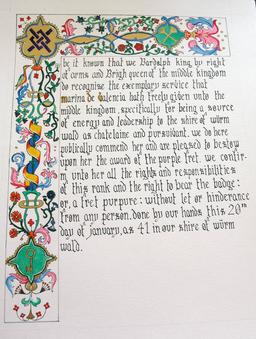 be it known that we bardolph king by right
of arms and brigh queen of the middle kingdom
do recognise the exemplary service that
marina de valencia hath freely given unto the
middle kingdom, specifically for being a source
of energy and leadership to the shire of würm
wald as chatelaine and pursuivant. we do here
publically commend her and are pleased to bestow
upon her the award of the purple fret. we confir-
m unto her all the rights and responsibilities
of this rank and the right to bear the badge:
or, a fret purpure: without let or hinderance
from any person. done by our hands this 20th
day of january, as 41 in our shire of würm
wald.